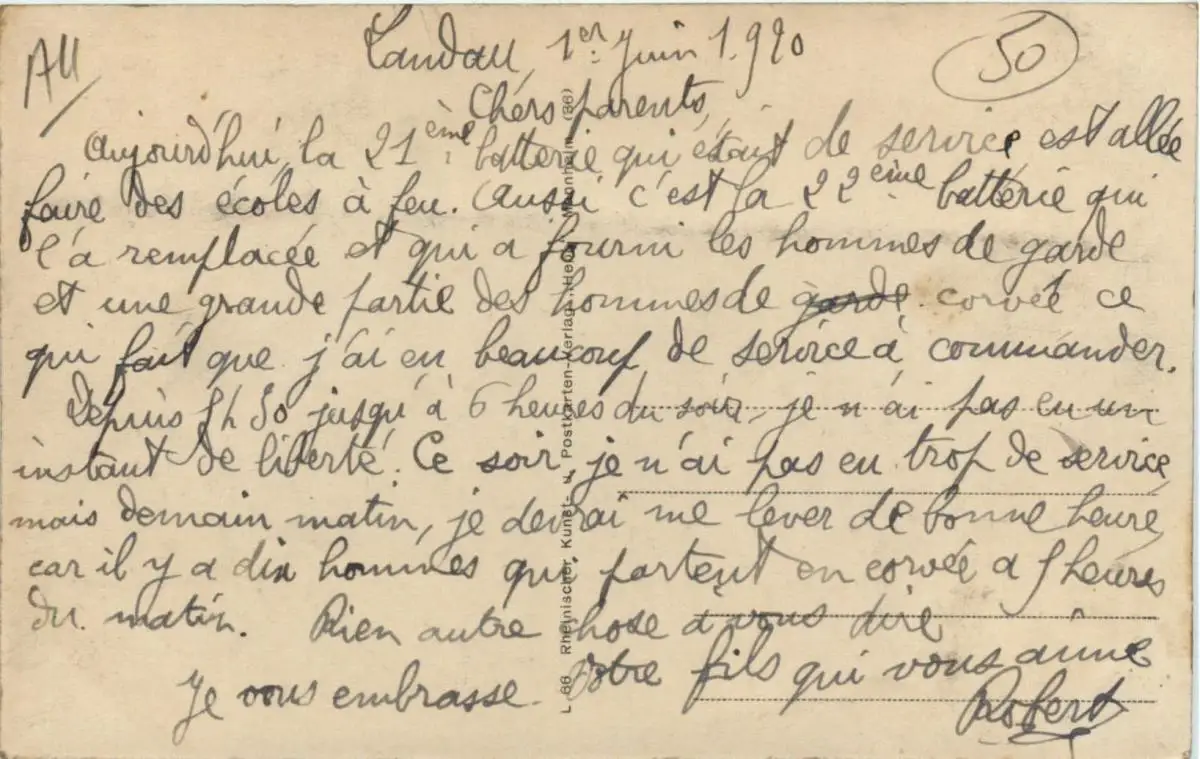 All
50
Landau, 1er Juin 1.920
Chers parents,
Aujourd'hui, la 21ème batterie qui était de service est allée
faire des écoles à feu. Aussi c'est la 22ème batterie qui
l'a remplacée et qui a fourni les hommes de garde
et une grande partie des hommes de garde corvée ce
qui fait que j'ai eu beaucoup de service à commander.
Depuis 5h 30 jusqu'à 6 heures du soir, je n'ai pas eu un
instant de liberté. Ce soir je n'ai pas eu trop de service
mais demain matin, je devrai me lever de bonne heure
car il y a dix hommes qui partent en corvée a 5 heures
du matin. Rien autre chose a vous dire
Je vous embrasse. Votre fils qui vous aime
Robert
L 66 Rheinischer Kunst- u. Postkarten-Verlag Mannheim (66)